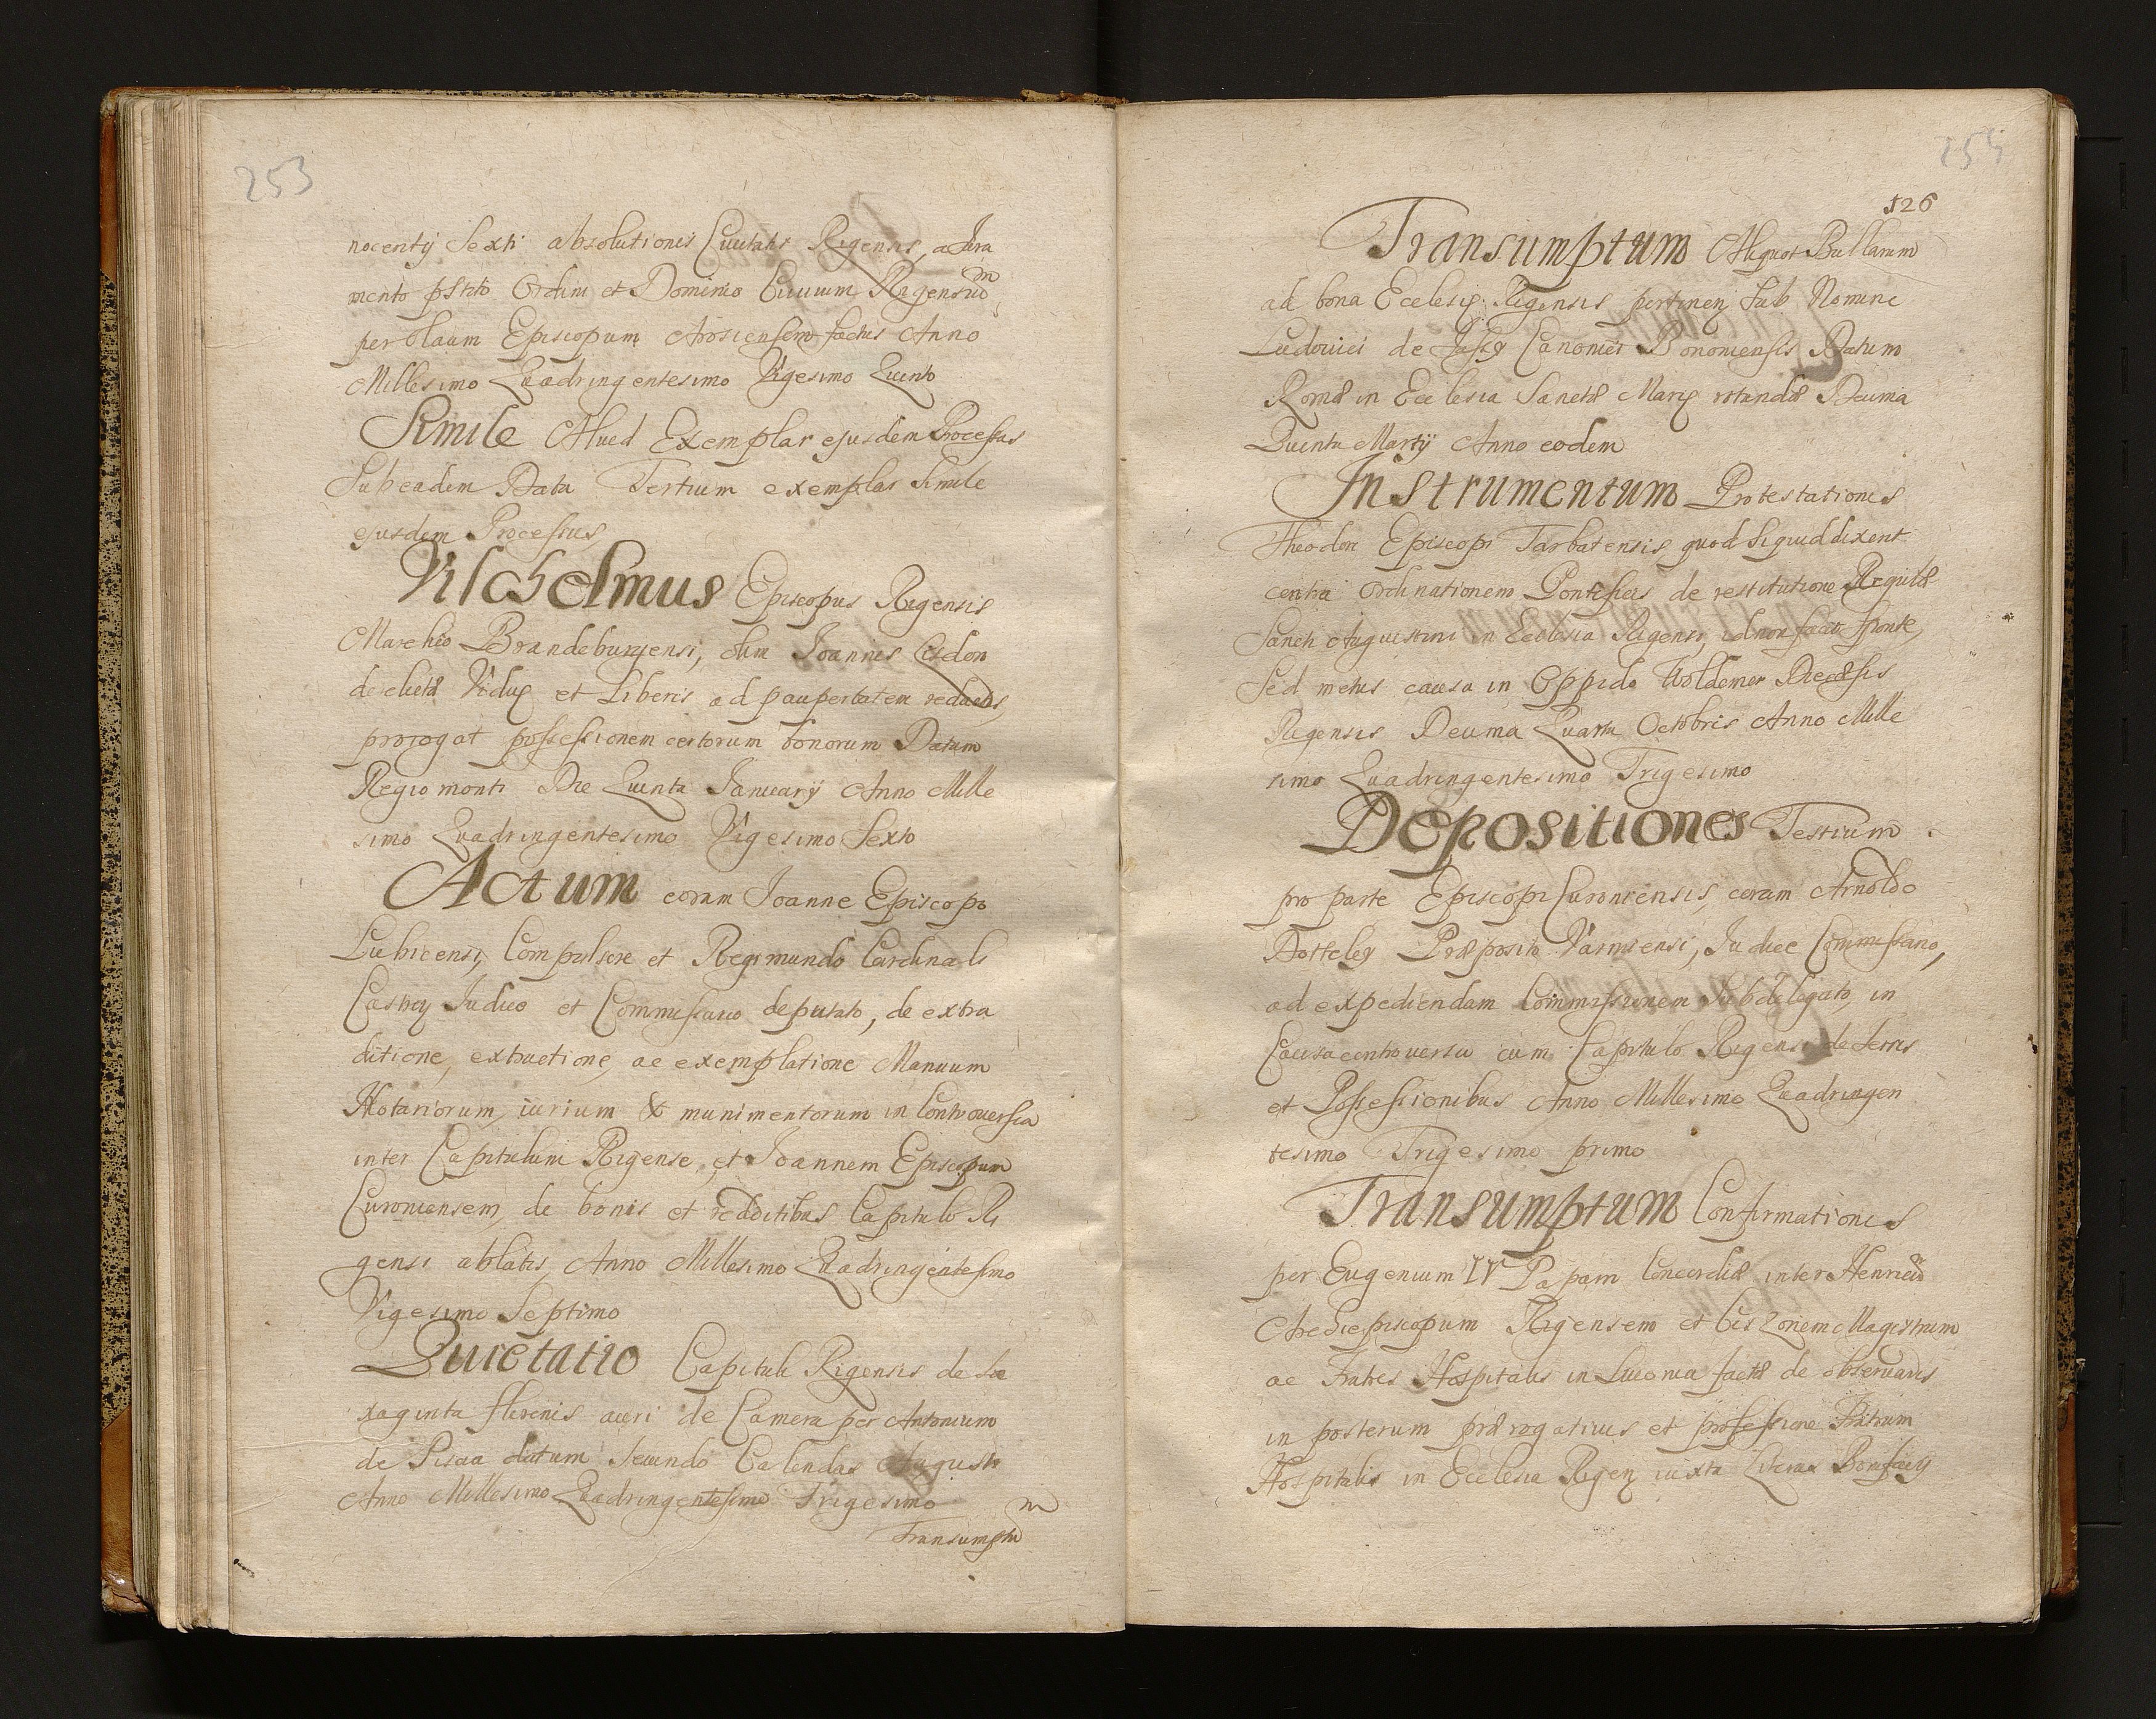 253
nocentij Sexti absolutionis Ciuitatis Rigensis, a Jura
mento pstito Ordini et Dominio Ciuium Rigensiũ m
per Olaum Episcopum Arosiensem factus Anno
Millesimo Quadringentesimo Vigesimo Quinto
Simile Aliud Exemplar ejusdem Processus
Sub eadem Data Tertium exemplar simile
ejusdem Processus
Vilchelmus Episcopus Rigensis
Marchio Brandeburgensi, olim Joannis
de elictæ Viduę et Liberis ad paupertatem reductis,
prorogat possessionem certorum bonorum Datum
Regiomonti Die Quinta Januarij Anno Mille
simo Quadringentesimo Vigesimo Sexto
Actum coram Joanne Episcopo
Lubicensi, Compulsore et Regimundo Cardinali
Judice et Commissario deputato, de extra
ditione, extractione, ac exemplatione Manuum
Notariorum, iurium & munimentorum in Controuersia
inter Capitulum Rigense, et Joannem Episcopum
Curoniensem, de bonis et redditibus Capitulo Ri
gensi ablatis, Anno Millesimo Quadringentesimo
Vigesimo Septimo
Quietatio Capituli Rigensis de Se
xaginta florenis auri de Camera per Antonium
de Pisaa datum Secundo Calendas Augusti
Anno Millesimo Quadringentesimo Trigesimo
Transumptũ m
126
Transumptum Aliquot Bullarum
ad bona Ecclesię Rigensis pertinen Sub Nomine
Ludouici de Canonici Bononiensis Datum
Romæ in Ecclesia Sanctæ Marię rotundæ Decima
Quinta Martij Anno eodem
Instrumentum Protestationis
Theodori Episcopi Tarbatensis quod siquid dixerit
contra Ordinationem Pontificis de restitutione Regulæ
Sancti Augustini in Ecclesia Rigensi, id non facit sponte,
Sed metus causa in Oppido Woldemer Diecæsis
Rigensis Decima Quarta Octobris Anno Mille
simo Quadringentesimo Trigesimo
Depositiones Testium
pro parte Episcopi Curoniensis, coram Arnoldo
Præposito Varmiensi, Judice Commissario,
ad expediendam Commissionem Subdelegato, in
Causa controuersa cum Capitulo Rigensi de terris
et Possessionibus Anno Millesimo Quadringen
tesimo Trigesimo primo
Transumptum Confirmationis
per Eugenium IV Papam Concordiæ inter Henricũ m
Archiepiscopum Rigensem et Magistrum
ac Fratres Hospitalis in Liuonia factæ de obseruaris
in posterum prærogatiuis et professione Fratrum
Hospitalis in Ecclesia Rigen iuxta Literas Bonifacij